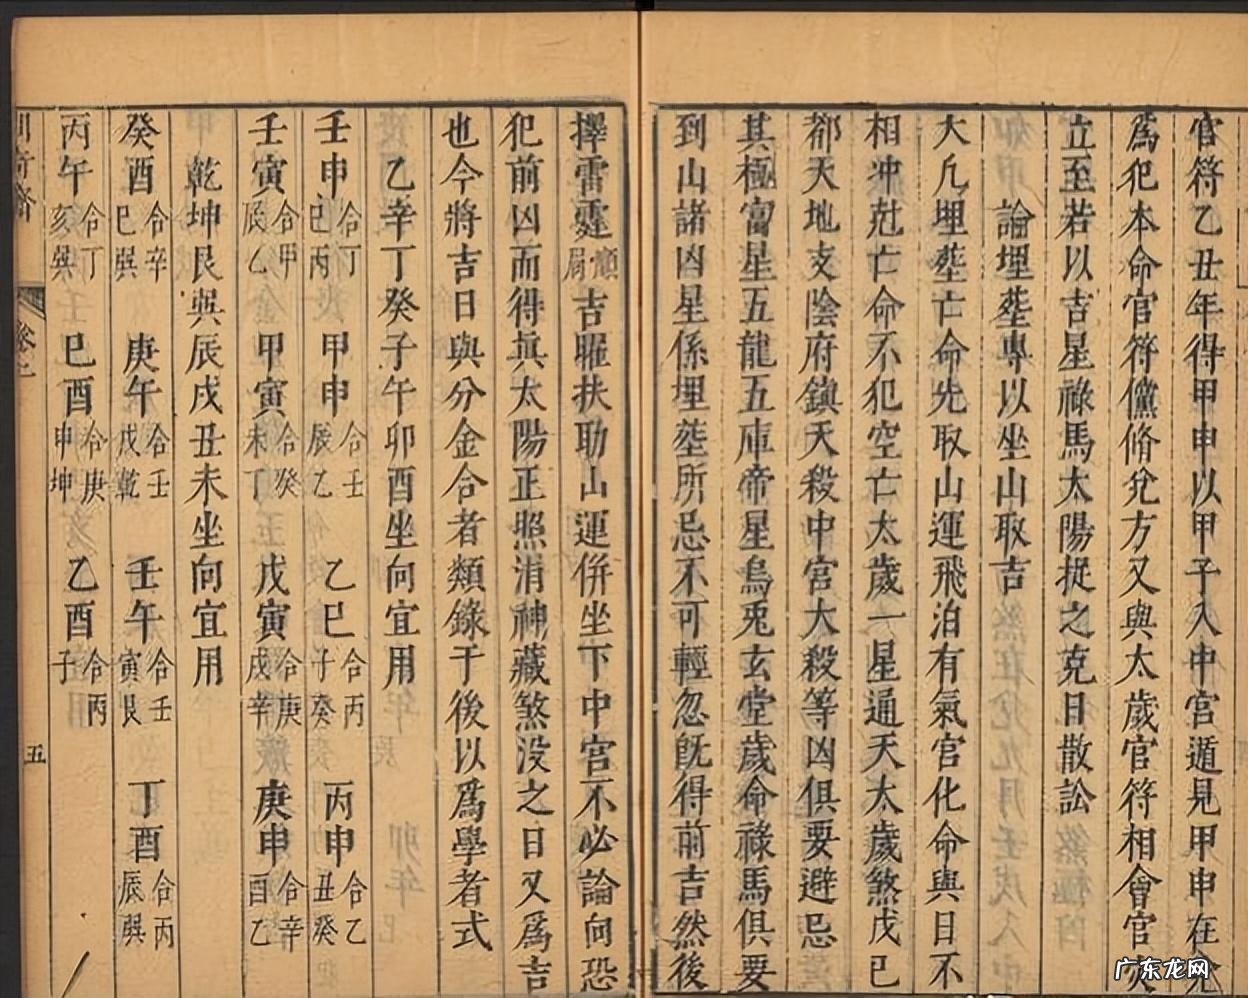 官符乙丑年得甲申以甲子入中宮遁見甲申在兌
爲犯本命官符儻脩兌方又與太歲官符相會官災
立至若以吉星祿馬太陽捉之克日散訟
論埋塟專以坐山取吉
大凡埋塟亡命先取山運飛泊有氣宮化命與日不
相冲尅亡命不犯空亡太歲一星通天太歲煞戊己
都天地支陰府鎮天殺中宮大殺等凶俱要避忌
其極富星五龍五庫帝星烏兎玄堂歲命祿馬俱要
到山諸凶星係埋塟所忌不可輕忽旣得前吉然後
擇雷霆順局吉曜扶助山運併坐下中宮不必論向恐
犯前凶而得眞太陽正照消神藏煞没之日又爲吉
也今將吉日與分金合者類錄于後以爲學者式
乙辛丁癸子午卯酉坐向宜用
壬申合丁巳丙 甲申合壬辰乙 乙巳合丙子癸 丙申合乙丑癸
壬寅合甲辰乙 甲寅合癸未丁 戊寅合庚戌辛 庚申合辛酉乙
乾坤艮巽辰戌丑未坐向宜用
癸酉合辛巳巽 庚午合壬戌乾 壬午合壬寅艮 丁酉合丙辰巽
丙午合丁亥巽 巳酉合庚申坤 乙酉合丙子
五
广东龙网